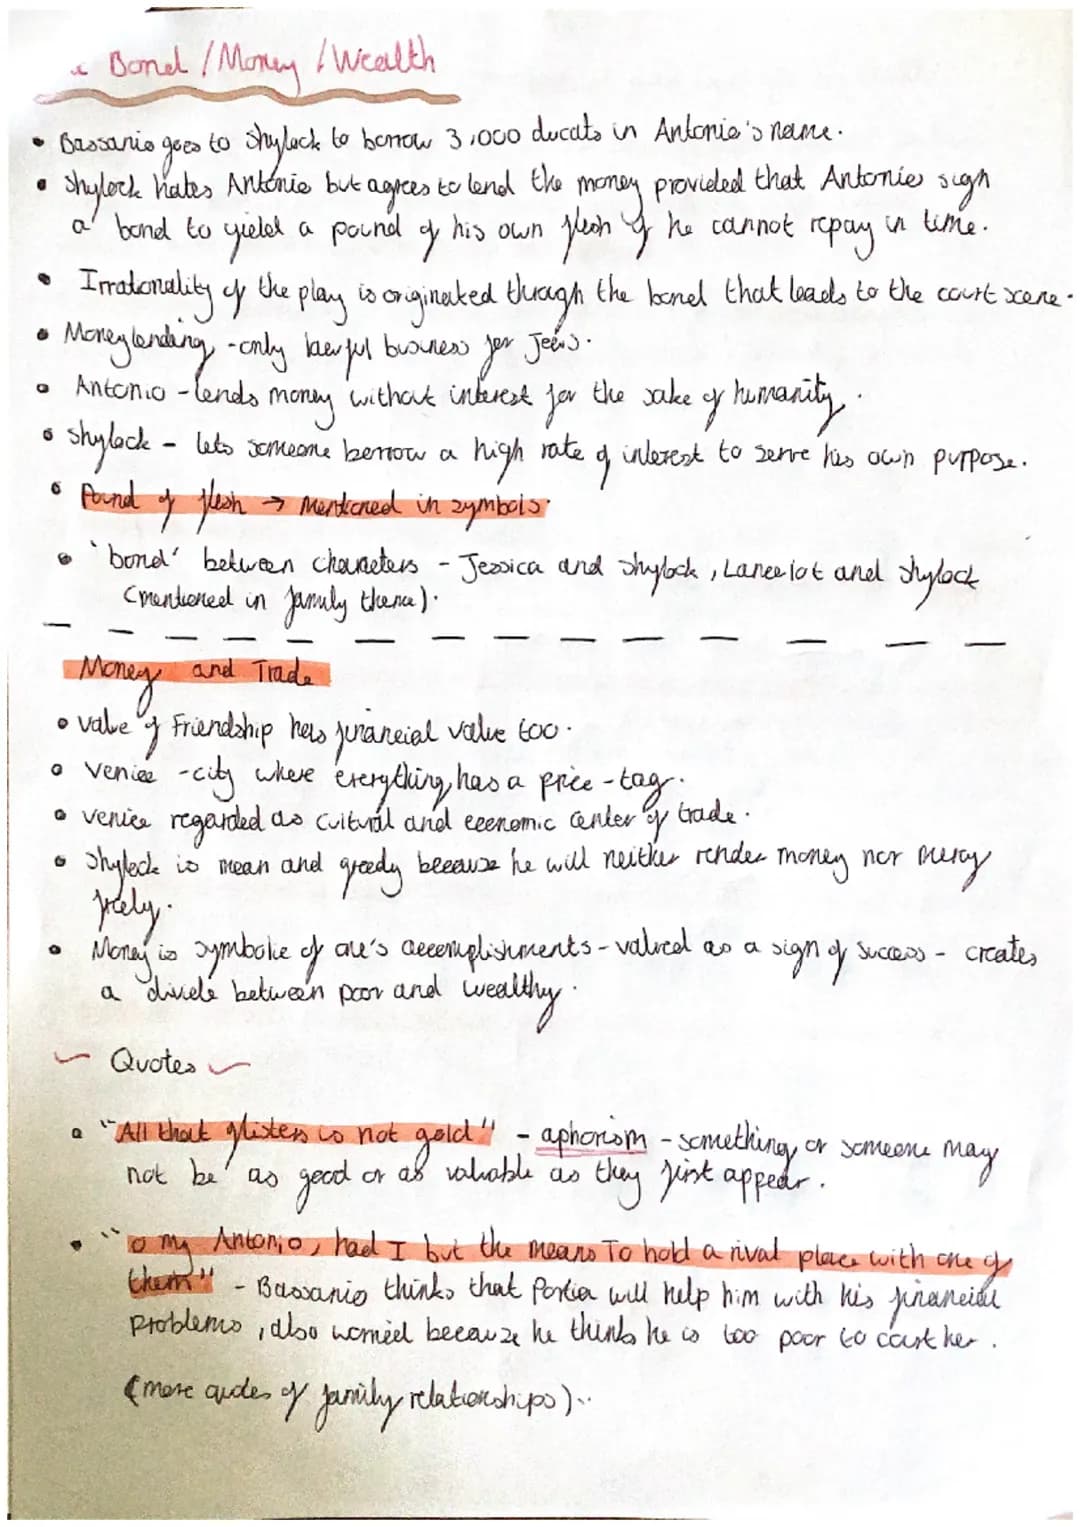 Bond / Money / Wealth
• Bassanio goes to Shylock to borrow 3,000 ducats in Antonio's name.
• Shylock hates Antonio but agrees to lend the money provided that Antonio sign
a bond to yield a pound of his own flesh if he cannot repay in time.
• Irrationality of the play is originated through the bond that leads to the court scene.
• Moneylending - only lawful business for Jews.
• Antonio - lends money without interest for the sake of humanity.
• Shylock - lets someone borrow a high rate of interest to serve his own purpose.
• Pound of flesh → Mentioned in symbols.
• 'bond' between characters - Jessica and Shylock, Lancelot and Shylock
(mentioned in family theme).
Money and Trade
• Value of Friendship has financial value too.
• Venice - city where everything has a price-tag.
• Venice regarded as cultural and economic center of trade.
• Shylock is mean and greedy because he will neither render money nor mercy
freely.
• Money is symbolic of one's accomplishments - valued as a sign of success - creates
a divide between poor and wealthy.
Quotes
• "All that glisters is not gold" - aphorism - something or someone may
not be as good or as valuable as they first appear.
• "O my Antonio, had I but the means To hold a rival place with one of
them" - Bassanio thinks that Portia will help him with his financial
problems, also worried because he thinks he is too poor to court her.
(more quotes of family relationships)..